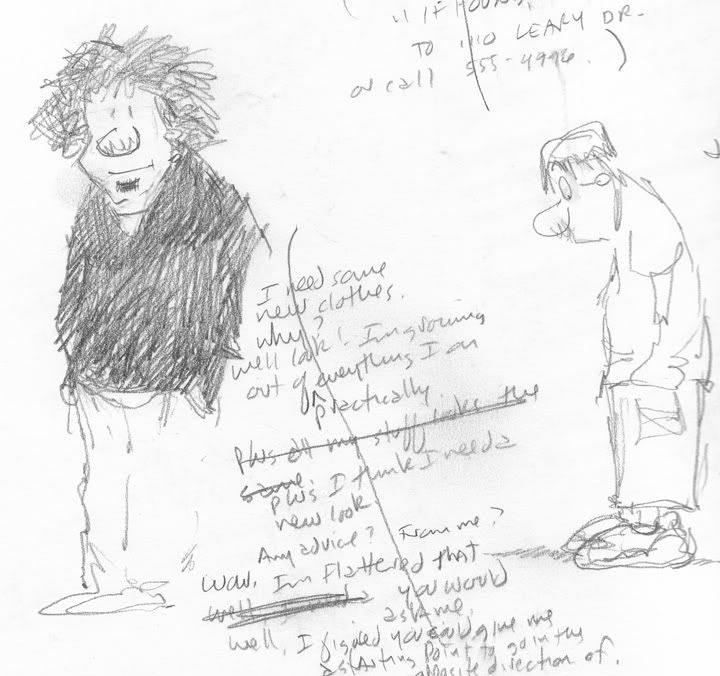 " IF FOUND,
TO 1110 LEARY DR.
or call 555-4996.)
I need some
new clothes.
why?
well look! I'm growing
out of everything I own
practically.
Plus all my stuff looks the
same.
plus I think I need a
new look.
Any advice? From me?
wow. I'm flattered that
you would
ask me.
well, I figured you could give me
a starting point to go in the
opposite direction of.